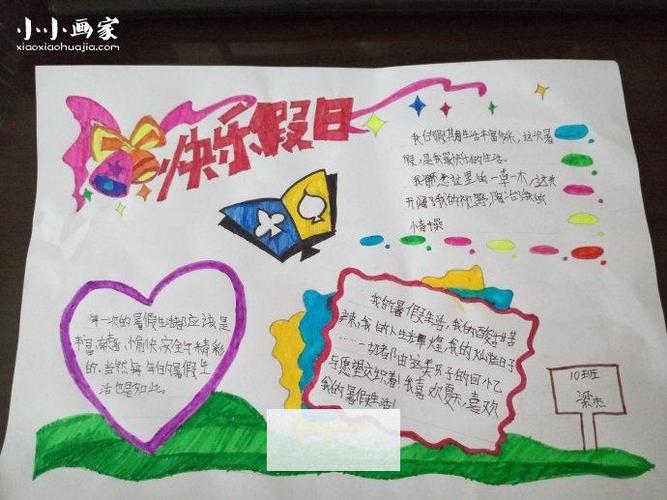 小小画家
xiaoxiaohuajia.com
快乐假日
我们假期生活丰富多彩，这次暑
假，是我最快乐的生活。
我怀念这里的一草一木，这次
开阔了我的视野陶冶了我的
情操
每一次的暑假生活都应该是
丰富，愉快安全于精彩
的，当然每年的暑假生
活也是如此。
我的暑假生活，我的酸甜苦
辣，我的人生辉煌，我的灿烂日子
……一切都由这美好的回忆
与愿望交织着！我喜欢夏，喜欢
我的暑假生活！
10班
梁杰